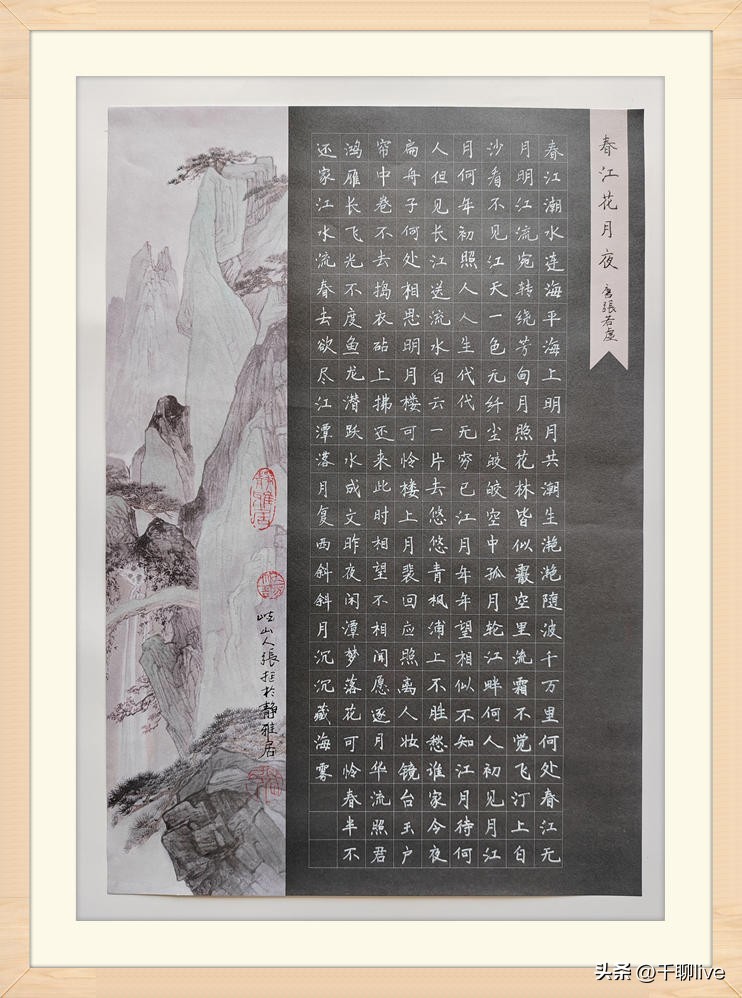 春江花月夜
唐張若虚
春江潮水连海平海上明月共潮生滟滟随波千万里何处春江无
月明江流宛转绕芳甸月照花林皆似霰空里流霜不觉飞汀上白
沙看不见江天一色无纤尘皎皎空中孤月轮江畔何人初见月江
月何年初照人人生代代无穷已江月年年望相似不知江月待何
人但见长江送流水白云一片去悠悠青枫浦上不胜愁谁家今夜
扁舟子何处相思明月楼可怜楼上月裴回应照离人妆镜台玉户
帘中卷不去捣衣砧上拂还来此时相望不相闻愿逐月华流照君
鸿雁长飞光不度鱼龙潜跃水成文昨夜闲潭梦落花可怜春半不
还家江水流春去欲尽江潭落月复西斜斜月沉沉藏海雾
静雅居
岐山人張於静雅居
头条 @千聊live